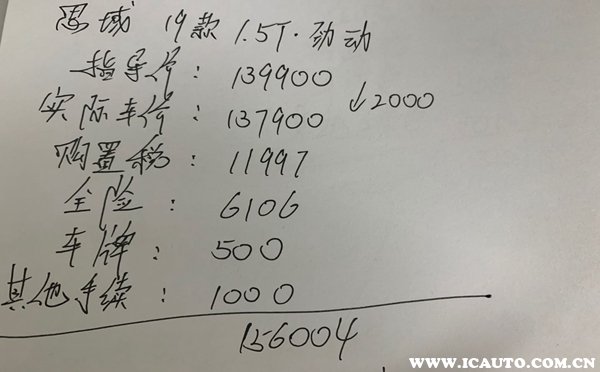 思域 19款 1.5T·劲动
指导价: 139900
实际车价: 137900 ↓2000
购置税: 11997
全险: 6106
车牌: 500
其他手续: 1000
156004
WWW.ICAUTO.COM.CN